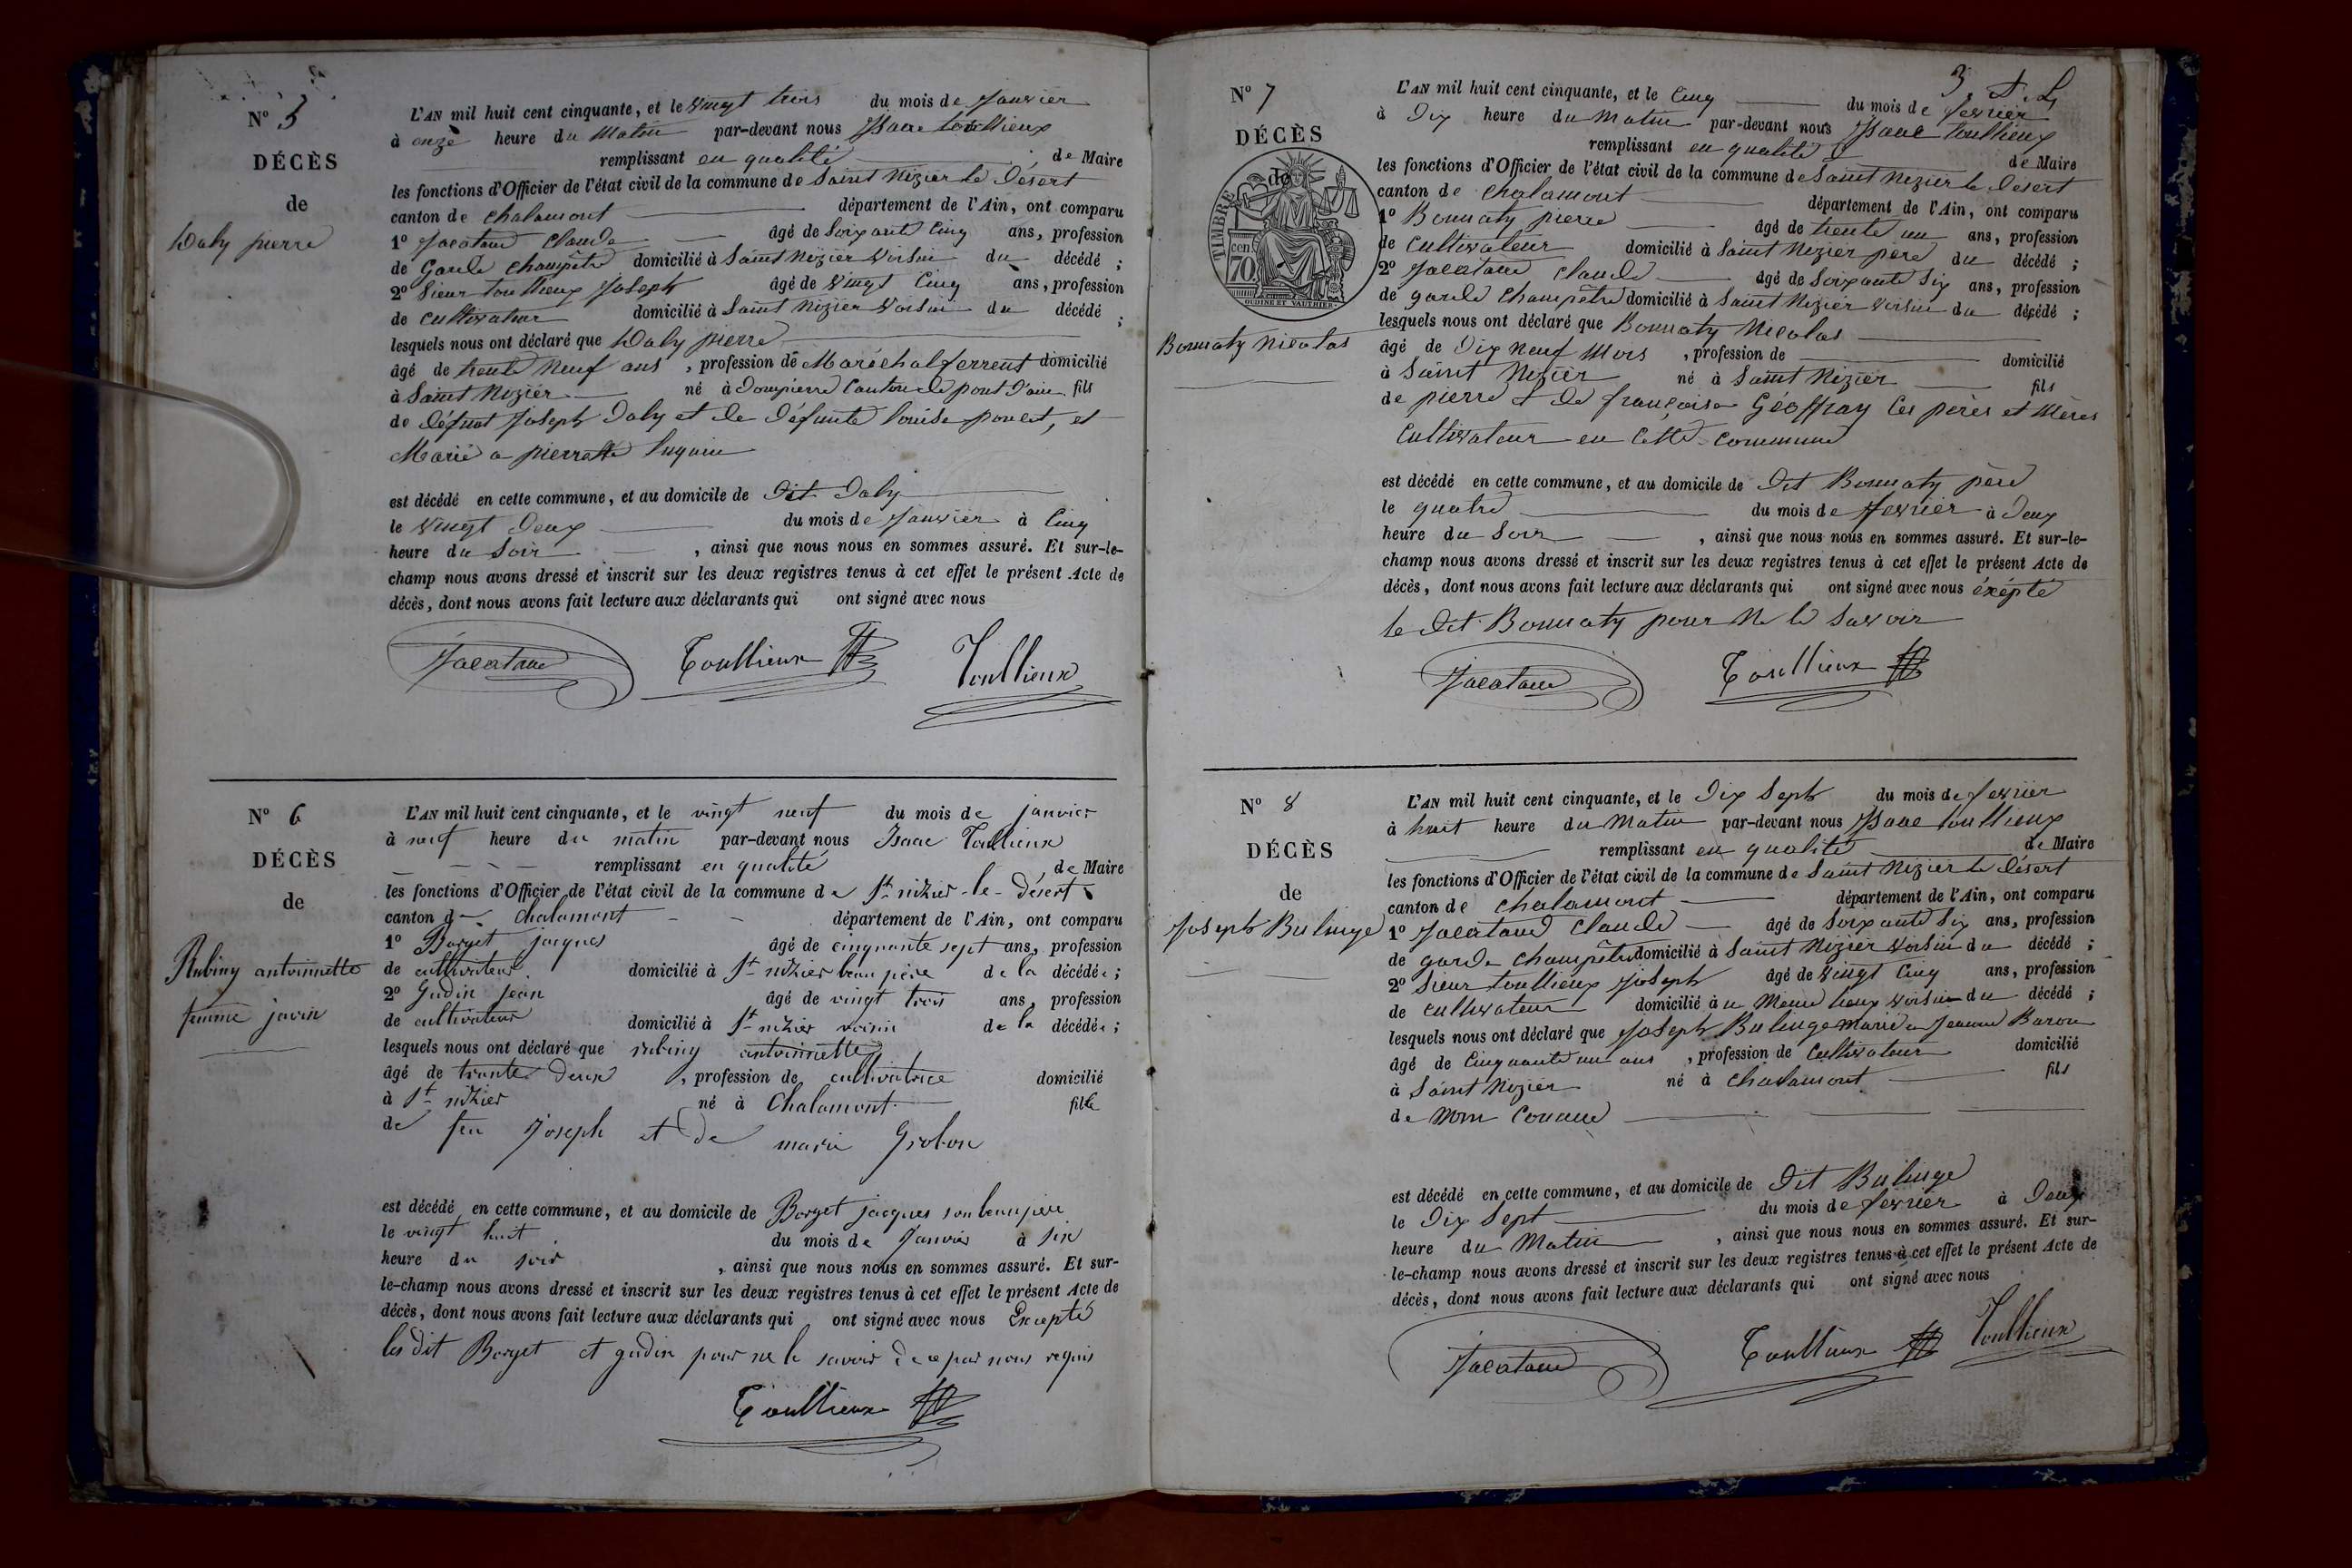 No 5
DÉCÈS
de
Daly pierre
L'AN mil huit cent cinquante, et le vingt trois du mois de Janvier
à onze heure du Matin par-devant nous Isaac toullieux
remplissant en qualité de Maire
les fonctions d'Officier de l'état civil de la commune de Saint Nizier le Désert
canton de chalamont département de l'Ain, ont comparu
1o Jacataud Claude âgé de Soixante Cinq ans, profession
de Garde champêtre domicilié à Saint Nizier voisin du décédé ;
2o Sieur toullieux Joseph âgé de vingt Cinq ans, profession
de cultivateur domicilié à Saint Nizier voisin du décédé ;
lesquels nous ont déclaré que Daly pierre
âgé de trente Neuf ans , profession de Maréchal ferrent domicilié
à Saint Nizier né à Dompierre Canton de pont d'ain fils
de défunt Joseph Daly et de Défunte Louise poncet, et
Marié a pierrette
est décédé en cette commune, et au domicile de Dit Daly
le vingt Deux du mois de Janvier à Cinq
heure du Soir , ainsi que nous nous en sommes assuré. Et sur-le-
champ nous avons dressé et inscrit sur les deux registres tenus à cet effet le présent Acte de
décès, dont nous avons fait lecture aux déclarants qui ont signé avec nous
Jacataud Toullieux Toullieux
No 6
DÉCÈS
de
Rubiny antoinnette
femme javin
L'AN mil huit cent cinquante, et le vingt neuf du mois de janvier
à neuf heure du matin par-devant nous Isaac Toullieux
remplissant en qualité de Maire
les fonctions d'Officier de l'état civil de la commune de St nizier-le-Désert
canton de Chalamont département de l'Ain, ont comparu
1o Borget jacques âgé de cinquante sept ans, profession
de cultivateur domicilié à St nizier beau père de la décédée ;
2o Gudin jean âgé de vingt trois ans, profession
de cultivateur domicilié à St nizier voisin de la décédée ;
lesquels nous ont déclaré que rubiny antoinnette
âgé de trente deux , profession de cultivatrice domicilié
à St nizier né à Chalamont fille
de feu Joseph et de marie Grobon
est décédé en cette commune, et au domicile de Borget jacques son beau père
le vingt huit du mois de Janvier à six
heure du soir , ainsi que nous nous en sommes assuré. Et sur-
le-champ nous avons dressé et inscrit sur les deux registres tenus à cet effet le présent Acte de
décès, dont nous avons fait lecture aux déclarants qui ont signé avec nous Excepté
les dit Borget et gudin pour ne le savoir de ce par nous requis
Toullieux
3
No 7
DÉCÈS
de
TIMBRE
cen 70
OUDINE ET VAUTHIER
Bonnaty Nicolas
L'AN mil huit cent cinquante, et le Cinq du mois de fevrier
à Dix heure du Matin par-devant nous Isaac toullieux
remplissant en qualité de Maire
les fonctions d'Officier de l'état civil de la commune de Saint Nizier le Désert
canton de chalamont département de l'Ain, ont comparu
1o Bonnaty pierre âgé de trente un ans, profession
de cultivateur domicilié à Saint Nizier père du décédé ;
2o Jacataud Claude âgé de Soixante Six ans, profession
de garde champêtre domicilié à Saint Nizier voisin du décédé ;
lesquels nous ont déclaré que Bonnaty Nicolas
âgé de Dix neuf Mois , profession de domicilié
à Saint Nizier né à Saint Nizier fils
de pierre & de françoise Géoffray les pères et Mères
Cultivateur en cette commune
est décédé en cette commune, et au domicile de Dit Bonnaty père
le quatre du mois de fevrier à Deux
heure du Soir , ainsi que nous nous en sommes assuré. Et sur-le-
champ nous avons dressé et inscrit sur les deux registres tenus à cet effet le présent Acte de
décès, dont nous avons fait lecture aux déclarants qui ont signé avec nous éxépté
le Dit Bonnaty pour Ne le Savoir
Jacataud Toullieux
No 8
DÉCÈS
de
Joseph Bulinge
L'AN mil huit cent cinquante, et le Dix Sept du mois de fevrier
à huit heure du Matin par-devant nous Isaac toullieux
remplissant en qualité de Maire
les fonctions d'Officier de l'état civil de la commune de Saint Nizier le Désert
canton de chalamont département de l'Ain, ont comparu
1o Jacataud Claude âgé de Soixante Six ans, profession
de garde champêtre domicilié à Saint Nizier voisin du décédé ;
2o Sieur toullieux Joseph âgé de vingt Cinq ans, profession
de cultivateur domicilié à u Meme lieux voisin du décédé ;
lesquels nous ont déclaré que Joseph Bulinge marié a Jeanne Baron
âgé de Cinquante un ans , profession de Cultivateur domicilié
à Saint Nizier né à Chalamont fils
de Non Connue
est décédé en cette commune, et au domicile de Dit Bulinge
le Dix Sept du mois de fevrier à Deux
heure du Matin , ainsi que nous nous en sommes assuré. Et sur-
le-champ nous avons dressé et inscrit sur les deux registres tenus à cet effet le présent Acte de
décès, dont nous avons fait lecture aux déclarants qui ont signé avec nous
Jacataud Toullieux Toullieux